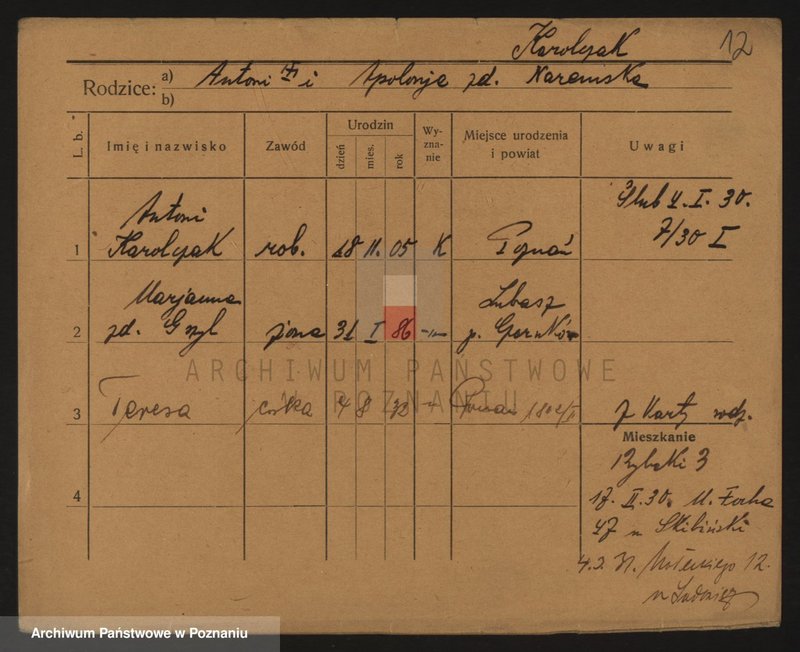 Karolczak 12
Rodzice: a) Antoni i Apolonja zd. Naremska
b)
L. b. Imię i nazwisko Zawód Urodzin dzień mies. rok Wyznanie Miejsce urodzenia i powiat Uwagi
Ślub 4. I. 30.
7/30 I
Antoni
1 Karolczak rob. 18 11. 05 K Poznań
Marjanna Lubasz
2 zd. Gzyl żona 31 I 86 -"- p. Czarnków
ARCHIWUM PAŃSTWOWE
W POZNANIU
3 Teresa córka 4 8 Poznań z Karty
Mieszkanie
Rybaki 3
4 17. II. 30. M. Focha
47 u Skibiński
4. 31. 12.
u
Archiwum Państwowe w Poznaniu